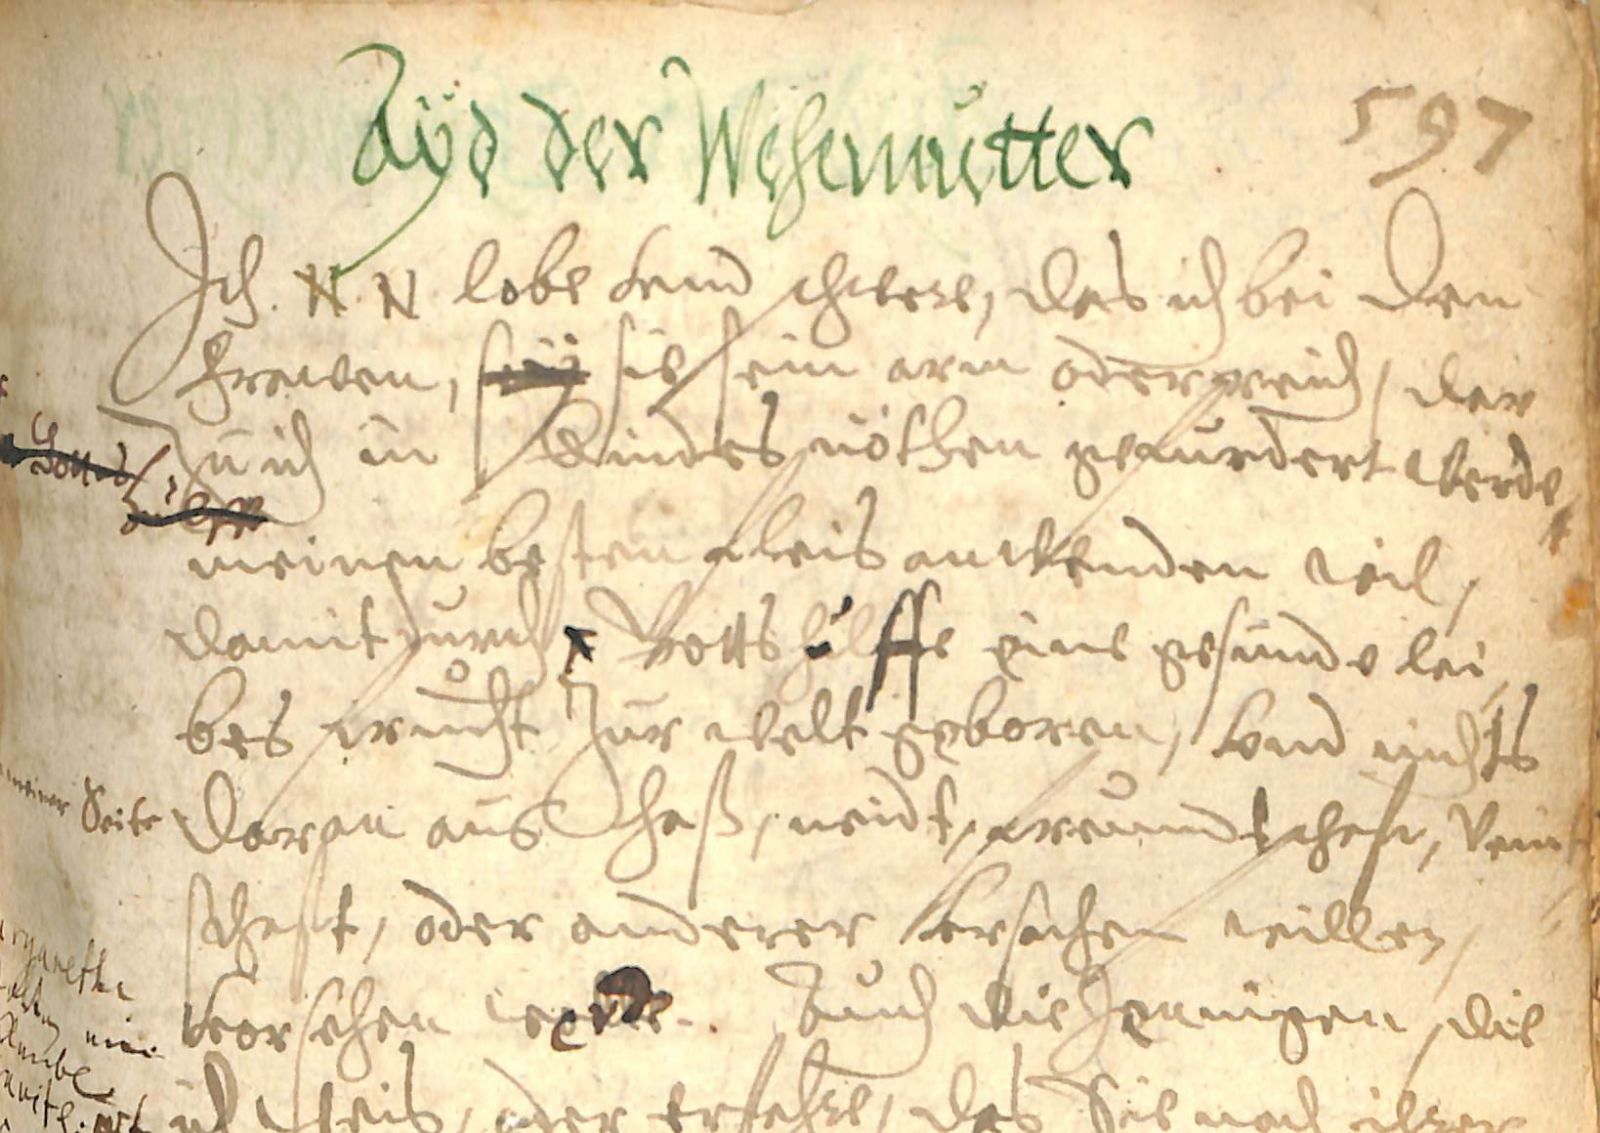 Aÿd der Wehemutter
597
Ich N. N. lobe vnd schwere, das ich bei den
frawen, sie sein arm oder reich, der
zu ich in Kindes nöthen gefurdert werde,
meinen besten fleis anwenden wil,
damit durch Gotts hülffe eine gesunde lei
bes frucht zur welt geboren, vnd nichts
daran aus haß, neidt, freundtschaft, vein
schafft, oder anderer vrsachen willen,
veorsehen werde. Auch diejennigen, die
ich weis, oder erfahre, das sie nach ihrer
Gottes
hülff
meiner Seite